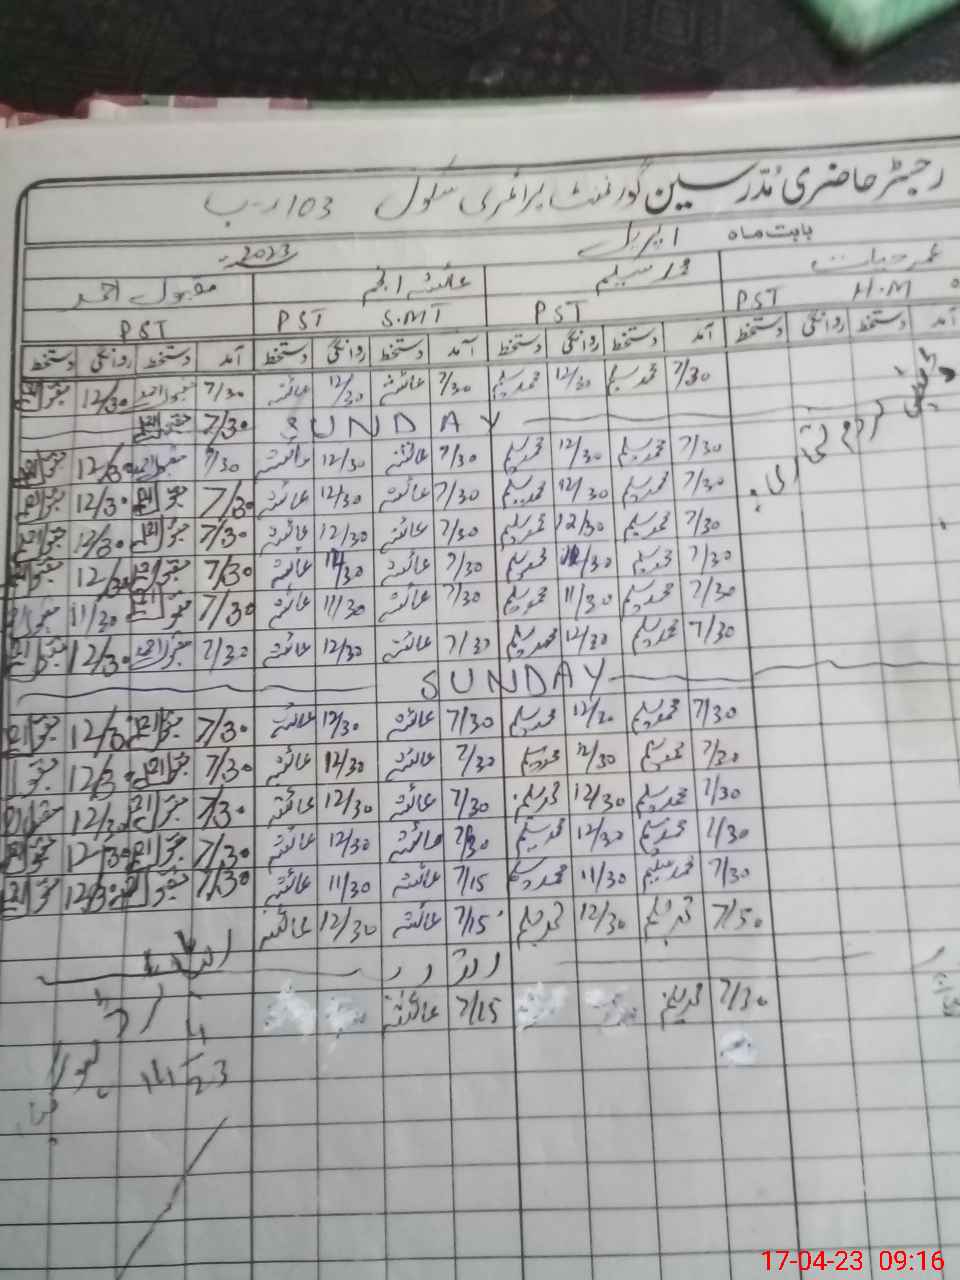 رجسٹر حاضری مدرسین گورنمنٹ پرائمری سکول 103 ر-ب
بابت ماہ اپریل 2023
عمر حیات محمد سلیم عائشہ انجم مقبول احمد
H.M PST PST S.M.T PST PST
آمد دستخط روانگی دستخط آمد دستخط روانگی دستخط آمد دستخط روانگی دستخط آمد دستخط روانگی دستخط
7/30 محمد سلیم 12/30 محمد سلیم 7/30 عائشہ 12/30 عائشہ 7/30 مقبول احمد 12/30 مقبول احمد
SUNDAY 7/30 مقبول احمد
7/30 محمد سلیم 12/30 محمد سلیم 7/30 عائشہ 12/30 عائشہ 7/30 مقبول احمد 12/30 مقبول احمد
7/30 محمد سلیم 12/30 محمد سلیم 7/30 عائشہ 12/30 عائشہ 7/30 مقبول احمد 12/30 مقبول احمد
7/30 محمد سلیم 12/30 محمد سلیم 7/30 عائشہ 12/30 عائشہ 7/30 مقبول احمد 12/30 مقبول احمد
7/30 محمد سلیم 12/30 محمد سلیم 7/30 عائشہ 12/30 عائشہ 7/30 مقبول احمد 12/30 مقبول احمد
7/30 محمد سلیم 11/30 محمد سلیم 7/30 عائشہ 11/30 عائشہ 7/30 مقبول احمد 11/30 مقبول احمد
7/30 محمد سلیم 12/30 محمد سلیم 7/30 عائشہ 12/30 عائشہ 7/30 مقبول احمد 12/30 مقبول احمد
SUNDAY
7/30 محمد سلیم 12/30 محمد سلیم 7/30 عائشہ 12/30 عائشہ 7/30 مقبول احمد 12/30 مقبول احمد
7/30 محمد سلیم 12/30 محمد سلیم 7/30 عائشہ 12/30 عائشہ 7/30 مقبول احمد 12/30 مقبول
7/30 محمد سلیم 12/30 محمد سلیم 7/30 عائشہ 12/30 عائشہ 7/30 مقبول احمد 12/30 مقبول احمد
7/30 محمد سلیم 12/30 محمد سلیم 7/30 عائشہ 12/30 عائشہ 7/30 مقبول احمد 12/30 مقبول احمد
7/30 محمد سلیم 11/30 محمد سلیم 7/15 عائشہ 11/30 عائشہ 7/30 مقبول احمد 12/30 مقبول احمد
7/50 محمد سلیم 12/30 محمد سلیم 7/15 عائشہ 12/30 عائشہ
اتوار
7/30 محمد سلیم 7/15 عائشہ
17-04-23 09:16